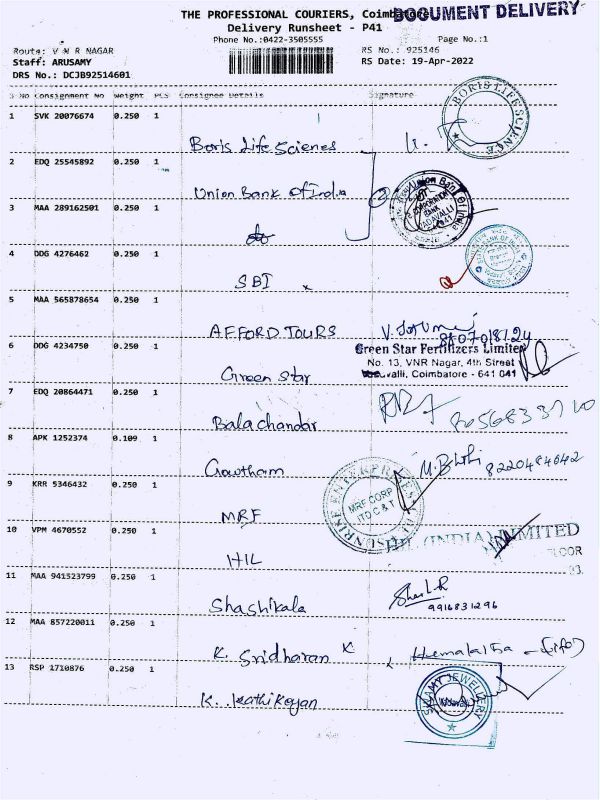 THE PROFESSIONAL COURIERS, Coimbatore
DOCUMENT DELIVERY
Delivery Runsheet - P41
Phone No.:0422-3505555
Page No.:1
Route: V N R NAGAR
RS No.: 925146
Staff: ARUSAMY
RS Date: 19-Apr-2022
DRS No.: DCJB92514601
S No Consignment No Weight PCS Consignee Details Signature
1 SVK 20076674 0.250 1
Boris Life Scienes
BORIS LIFE SCIENCE
2 EDQ 25545892 0.250 1
Union Bank Of India
Union Bank Of India
CORPORATION BANK
VADAVALLI
3 MAA 289162501 0.250 1
do
4 DDG 4276462 0.250 1
SBI
5 MAA 565878654 0.250 1
AFFORD TOURS
6 DDG 4234750 0.250 1
Green Star
Green Star Fertilizers Limited
No. 13, VNR Nagar, 4th Street
Vadavalli, Coimbatore - 641 041
7 EDQ 20864471 0.250 1
Balachandar
8 APK 1252374 0.109 1
Gowtham
8220484642
9 KRR 5346432 0.250 1
MRF
SUNRISE ENTERPRISES
MRF CORP
LTD C & T
10 VPM 4670552 0.250 1
HIL
HIL (INDIA) LIMITED
FLOOR
11 MAA 941523799 0.250 1
Shashikala
9916831296
12 MAA 857220011 0.250 1
K. Sridharan
Hemalatha - (wife)
13 RSP 1710876 0.250 1
K. Kathikeyan
SWAMY JEWELLERY